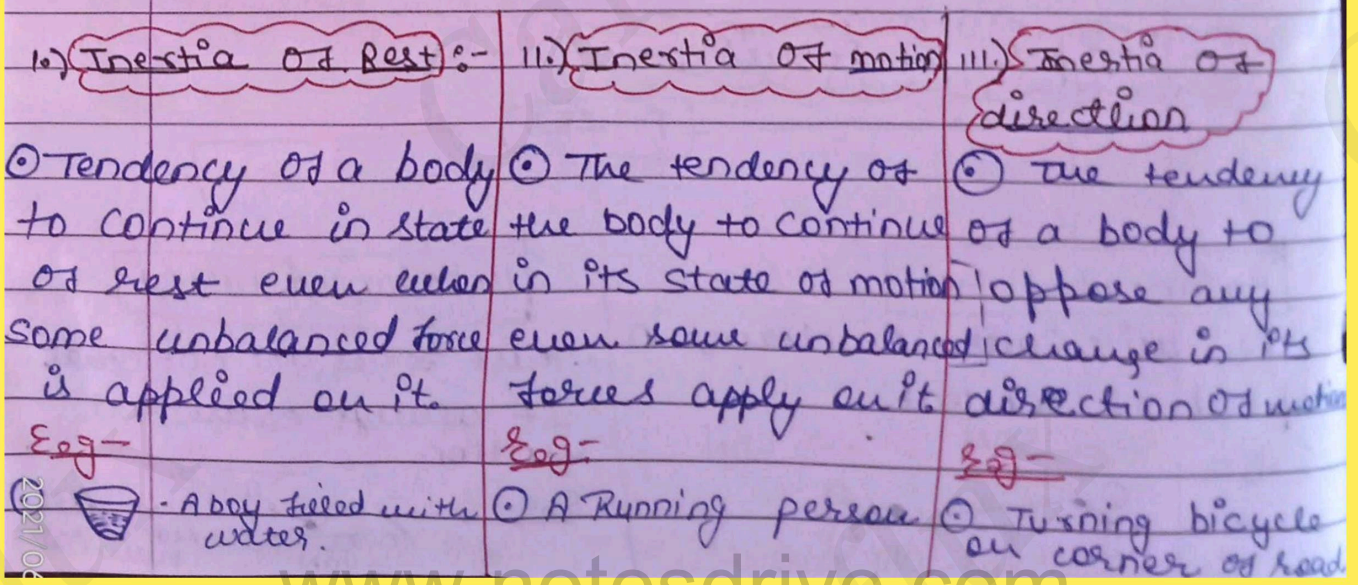 1.) Inertia Of Rest :-
⊙ Tendency of a body
to continue in state
of rest even when
some unbalanced force
is applied on it.
E.g -
- A boy filled with
water.
11.) Inertia Of motion
⊙ The tendency of
the body to continue
in its state of motion
even some unbalanced
forces apply on it.
E.g -
⊙ A Running person
111.) Inertia Of
direction
⊙ The tendency
of a body to
oppose any
change in its
direction of motion
Eg -
⊙ Turning bicycle
on corner of road
2021/06
www.notesdrive.com